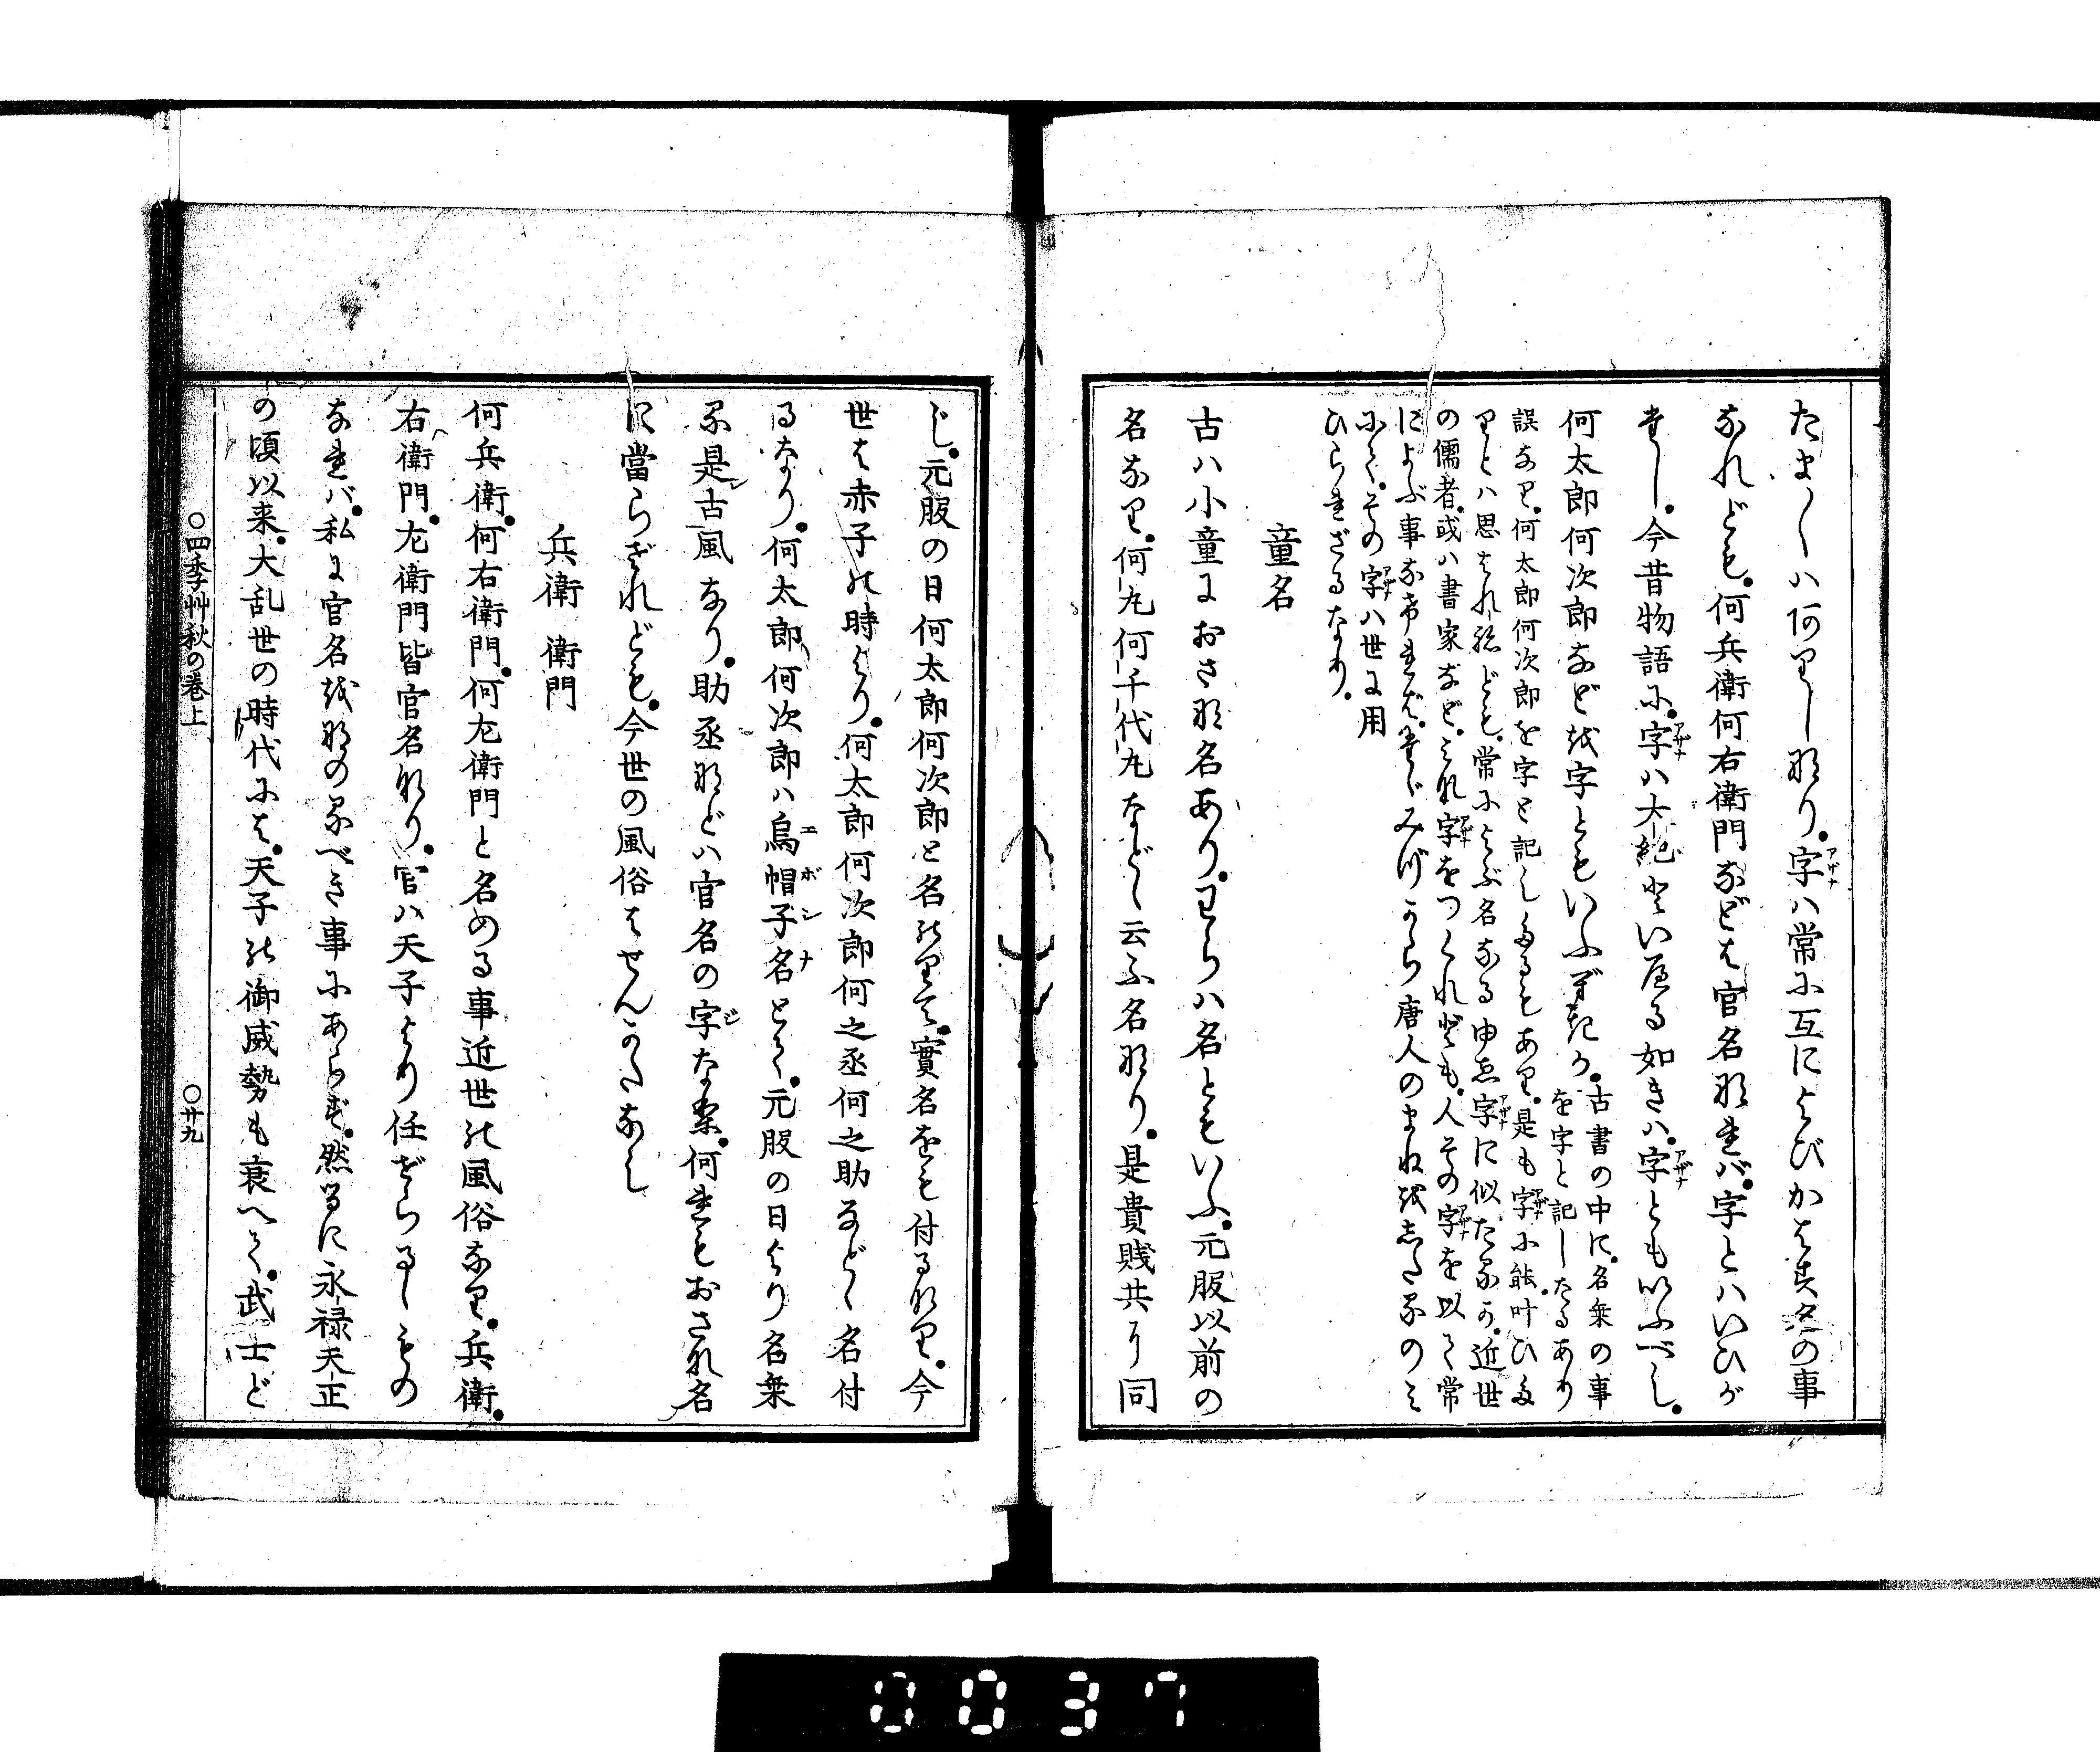 たま〳〵ハ何なりし那り。字ハ常に互によびかはす名の事
なれども。何兵衛何右衛門などは官名那れバ。字とハいひが
たし。今昔物語に。字ハ大紀といへる如きハ。字とも以ふべし。
何太郎何次郎など越字ともいふべきか。古書の中に。名乗の事
を字と記したるあり
誤なり。何太郎何次郎を字と記したるもあり。是も字に能叶ひた
りとハ思はれねども。常によぶ名なる由ゑ字に似たるか。近世
の儒者。或ハ書家など。これ字をつくれども。人その字を以て常
によぶ事なければ。たゞみづから唐人のまね越したるのミ
にて。その字ハ世に用
ひられざるなり。
童名
古ハ小童におさ那名あり。わらハ名ともいふ。元服以前の
名なり。何丸何千代丸などゝ云ふ名那り。是貴賤共に同
じ。元服の日何太郎何次郎と名のりて。實名をも付るなり。今
世は赤子の時より。何太郎何次郎何之丞何之助などゝ名付
るなり。何太郎何次郎ハ烏帽子名とて。元服の日より名乗
る是古風なり。助丞那どハ官名の字なる。何れもおさな名
に當らざれども。今世の風俗はせんかたなし
兵衛 衛門
何兵衛。何右衛門。何左衛門と名のる事近世の風俗なり。兵衛。
右衛門。左衛門皆官名なり。官ハ天子より任ぜらるゝもの
なれバ。私に官名越那のるべき事にあらず。然るに永禄天正
の頃以来。大乱世の時代には。天子の御威勢も衰へて。武士ど
○四季艸秋の巻上
○廿九
0037